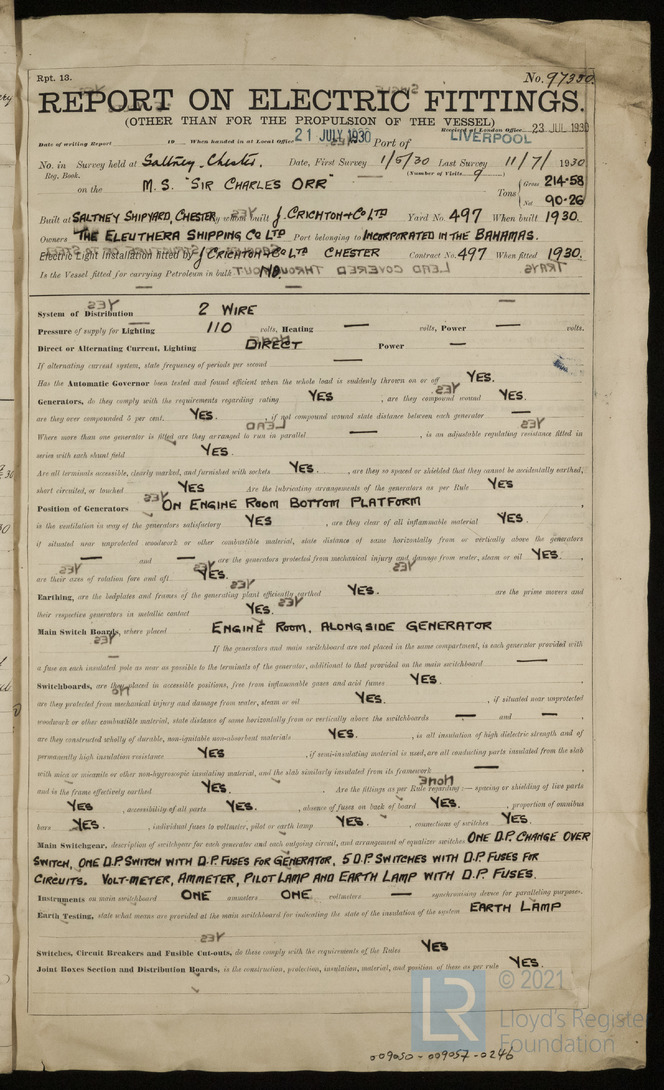 Rpt. 13. No. 97330.
REPORT ON ELECTRIC FITTINGS.
(OTHER THAN FOR THE PROPULSION OF THE VESSEL)
Received at London Office 23 JUL 1930
Date of writing Report 19 When handed in at Local Office 21 JULY 1930 Port of LIVERPOOL
No. in Survey held at Saltney, Chester. Date, First Survey 1/5/30 Last Survey 11/7/1930
Reg. Book. (Number of Visits 9)
on the M.S. "SIR CHARLES ORR" Tons { Gross 214.58
Net 90.26
Built at SALTNEY SHIPYARD, CHESTER By whom built J. CRICHTON & CO LTD Yard No. 497 When built 1930.
Owners THE ELEUTHERA SHIPPING CO LTD Port belonging to INCORPORATED IN THE BAHAMAS.
Electric Light Installation fitted by J CRICHTON & CO LTD CHESTER Contract No. 497 When fitted 1930.
Is the Vessel fitted for carrying Petroleum in bulk NO.
System of Distribution 2 WIRE
Pressure of supply for Lighting 110 volts, Heating — volts, Power — volts.
Direct or Alternating Current, Lighting DIRECT Power —
If alternating current system, state frequency of periods per second —
Has the Automatic Governor been tested and found efficient when the whole load is suddenly thrown on or off YES.
Generators, do they comply with the requirements regarding rating YES, are they compound wound YES.
are they over compounded 5 per cent. YES., if not compound wound state distance between each generator —
Where more than one generator is fitted are they arranged to run in parallel —, is an adjustable regulating resistance fitted in
series with each shunt field YES.
Are all terminals accessible, clearly marked, and furnished with sockets YES., are they so spaced or shielded that they cannot be accidentally earthed,
short circuited, or touched YES Are the lubricating arrangements of the generators as per Rule YES
Position of Generators ON ENGINE ROOM BOTTOM PLATFORM
is the ventilation in way of the generators satisfactory YES, are they clear of all inflammable material YES.
if situated near unprotected woodwork or other combustible material, state distance of same horizontally from or vertically above the generators
— and —, are the generators protected from mechanical injury and damage from water, steam or oil YES.
are their axes of rotation fore and aft YES.
Earthing, are the bedplates and frames of the generating plant efficiently earthed YES. are the prime movers and
their respective generators in metallic contact YES.
Main Switch Boards, where placed ENGINE ROOM, ALONGSIDE GENERATOR
If the generators and main switchboard are not placed in the same compartment, is each generator provided with
a fuse on each insulated pole as near as possible to the terminals of the generator, additional to that provided on the main switchboard —
Switchboards, are they placed in accessible positions, free from inflammable gases and acid fumes YES.
are they protected from mechanical injury and damage from water, steam or oil YES., if situated near unprotected
woodwork or other combustible material, state distance of same horizontally from or vertically above the switchboards — and —
are they constructed wholly of durable, non-ignitable non-absorbent materials YES., is all insulation of high dielectric strength and of
permanently high insulation resistance YES, if semi-insulating material is used, are all conducting parts insulated from the slab
with mica or micanite or other non-hygroscopic insulating material, and the slab similarly insulated from its framework —
and is the frame effectively earthed YES. Are the fittings as per Rule regarding:— spacing or shielding of live parts
YES, accessibility of all parts YES., absence of fuses on back of board YES., proportion of omnibus
bars YES., individual fuses to voltmeter, pilot or earth lamp YES., connections of switches YES.
Main Switchgear, description of switchgear for each generator and each outgoing circuit, and arrangement of equalizer switches ONE D.P. CHANGE OVER
SWITCH, ONE D.P. SWITCH WITH D.P. FUSES FOR GENERATOR, 5 D.P. SWITCHES WITH D.P. FUSES FOR
CIRCUITS. VOLT-METER, AMMETER, PILOT LAMP AND EARTH LAMP WITH D.P. FUSES.
Instruments on main switchboard ONE ammeters ONE voltmeters — synchronising device for paralleling purposes.
Earth Testing, state what means are provided at the main switchboard for indicating the state of the insulation of the system EARTH LAMP
Switches, Circuit Breakers and Fusible Cut-outs, do these comply with the requirements of the Rules YES
Joint Boxes Section and Distribution Boards, is the construction, protection, insulation, material, and position of these as per rule YES.
© 2021
LR
Lloyd's Register
Foundation
009050-009057-0246